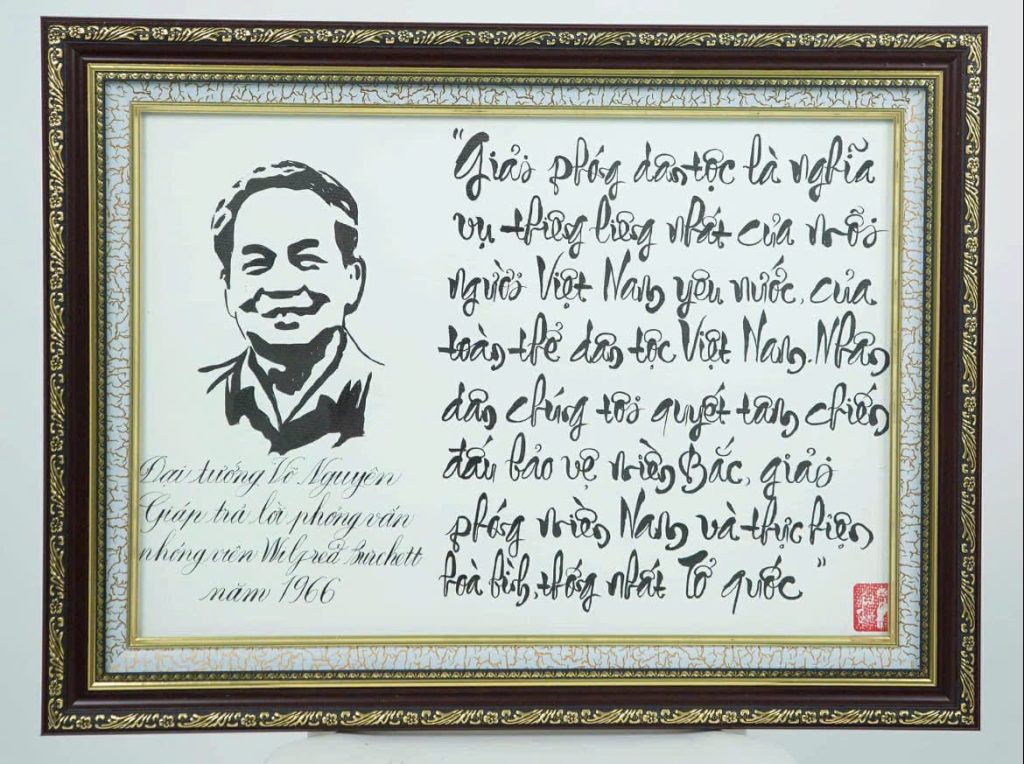 "Giải phóng dân tộc là nghĩa
vụ thiêng liêng nhất của mỗi
người Việt Nam yêu nước, của
toàn thể dân tộc Việt Nam. Nhân
dân chúng tôi quyết tâm chiến
đấu bảo vệ miền Bắc, giải
phóng miền Nam và thực hiện
hoà bình, thống nhất Tổ quốc"
Đại tướng Võ Nguyên
Giáp trả lời phỏng vấn
phóng viên Wilfred Burchett
năm 1966